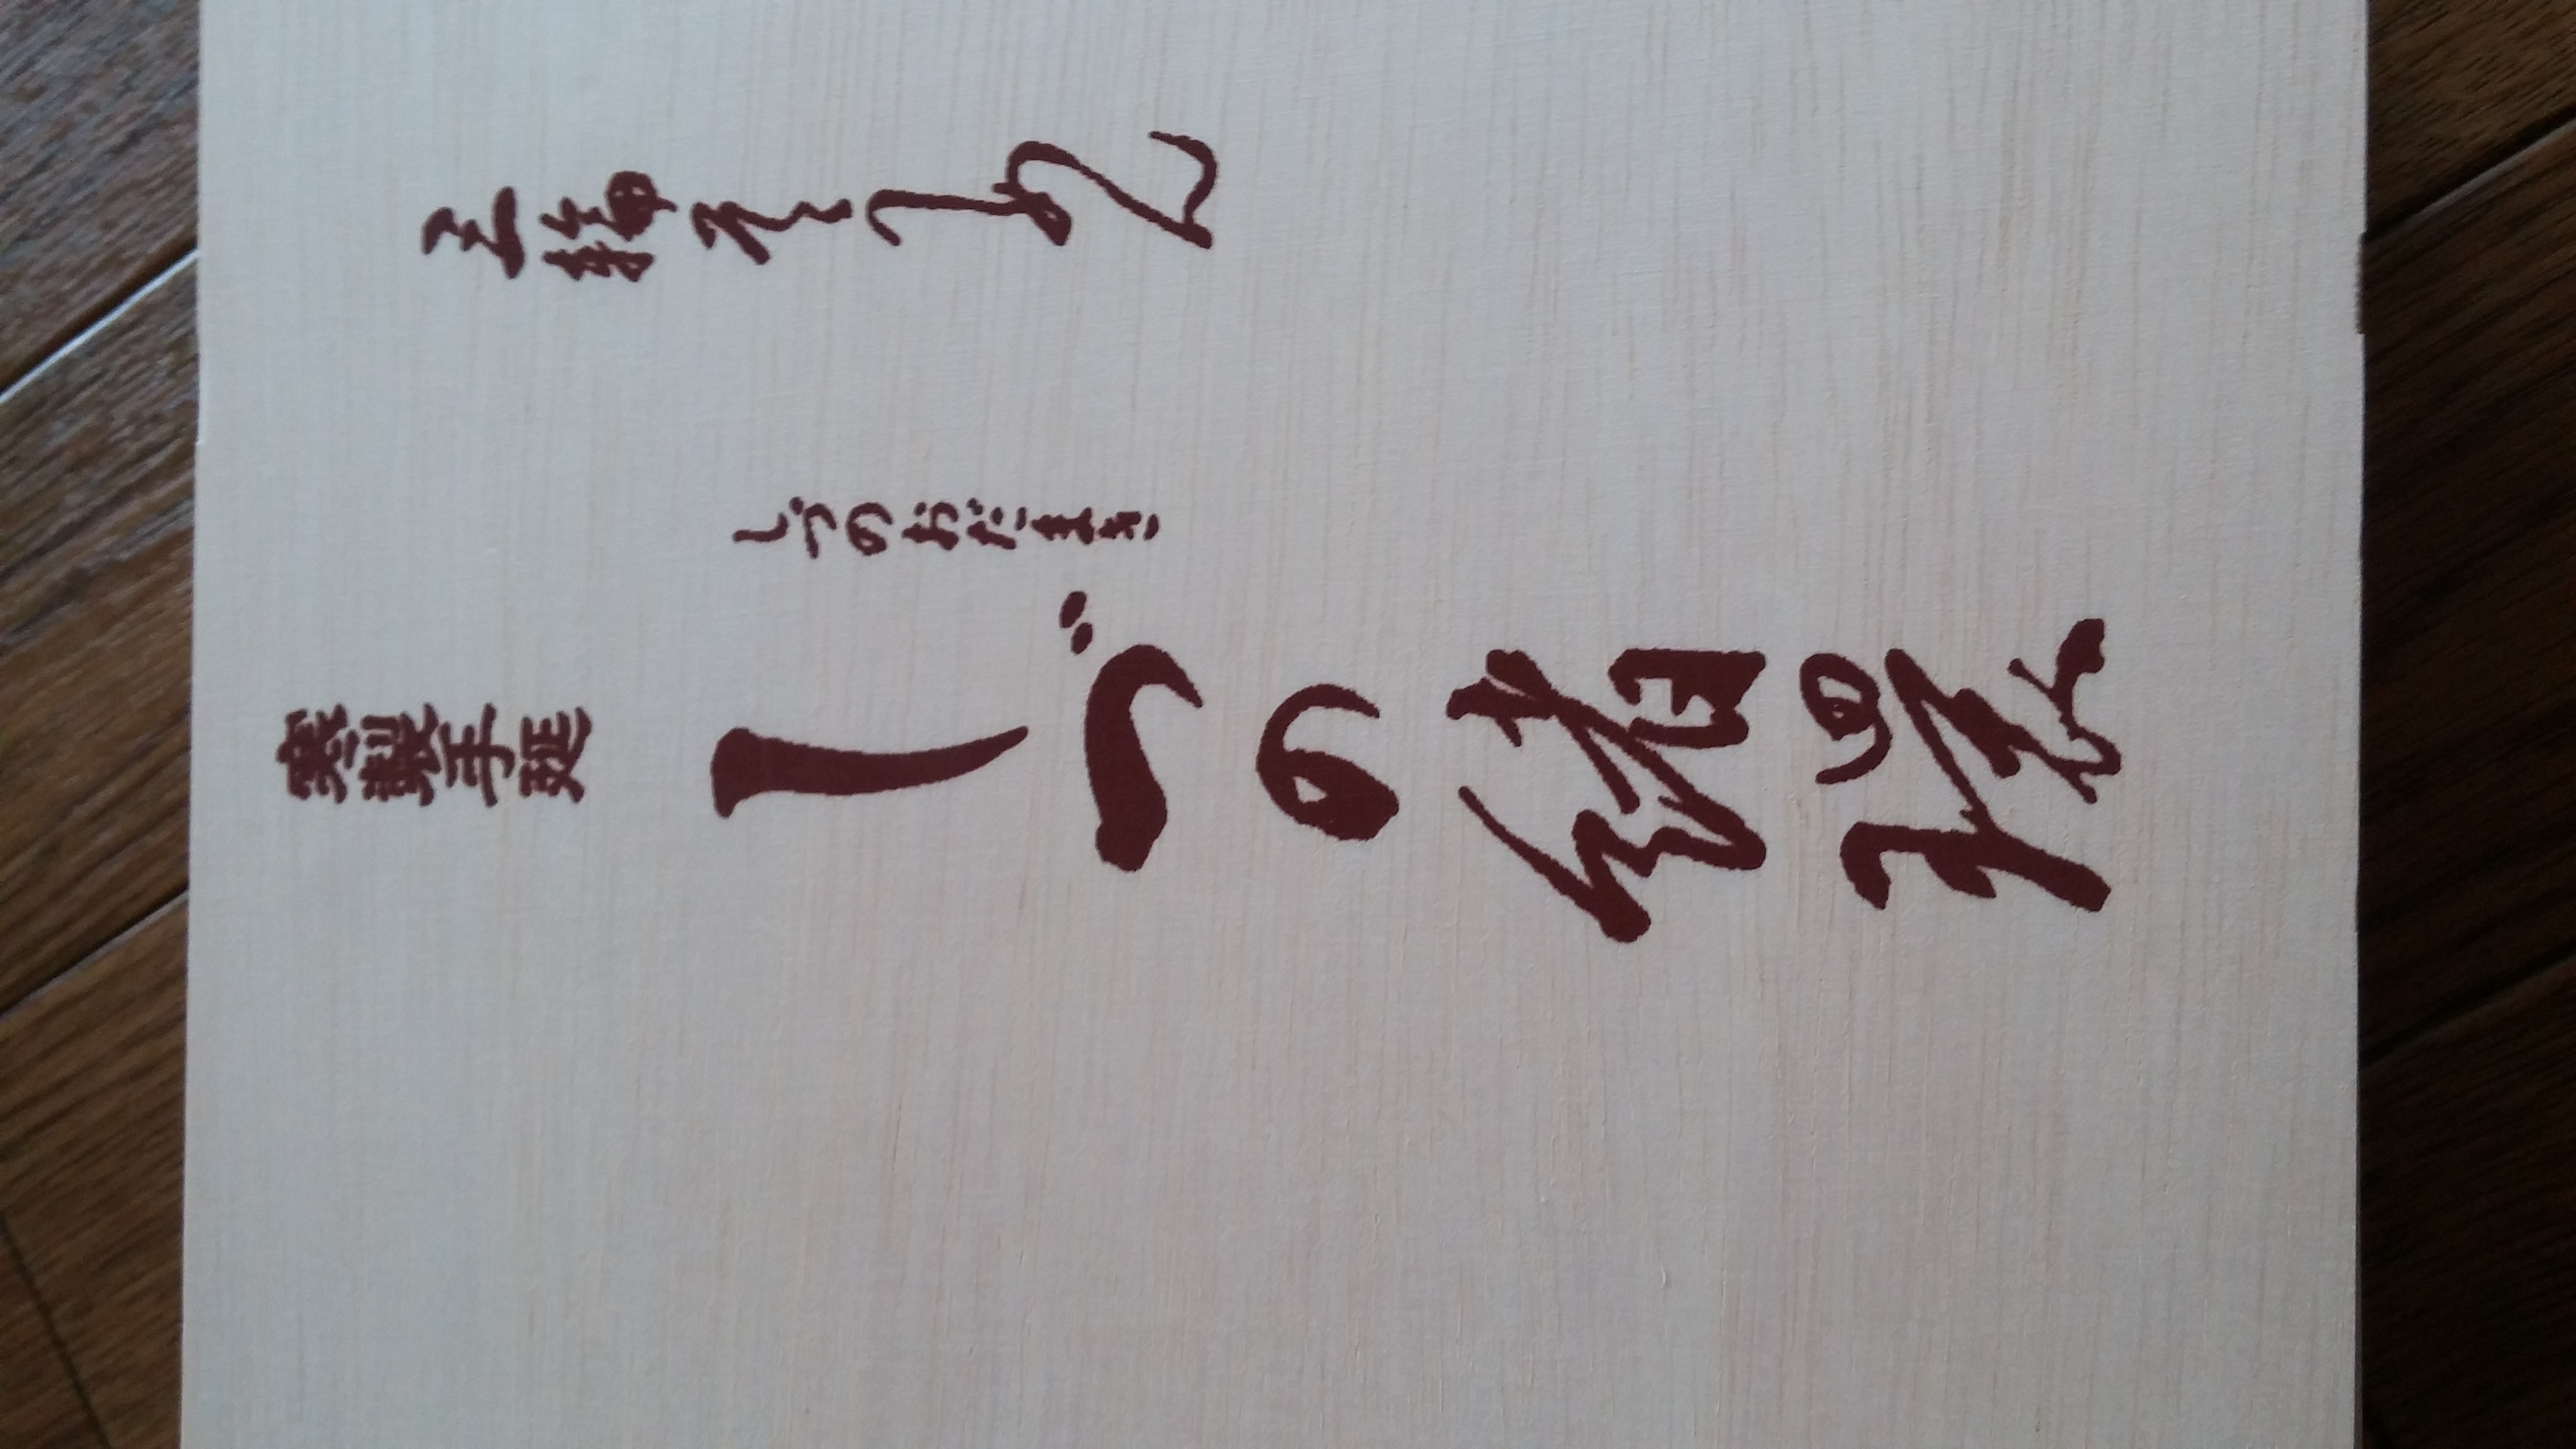 三輪そうめん
しづのおだまき
寒製手延 しづの緒環